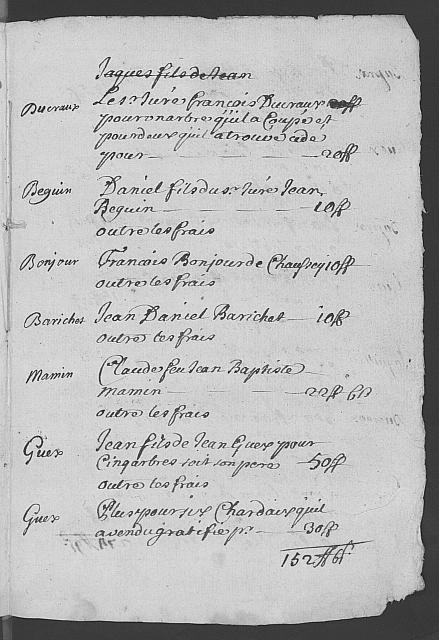 Jaques fils de Jean
Ducraux Le Sr. Juré François Ducraux 20ff
pour un arbre qu'il a Coupé et
pour deux qu'il a trouvé
pour 20ff
Beguin Daniel fils du Sr. Juré Jean
Beguin 10ff
outre les frais
Bonjour François Bonjour de Chaussey 10ff
outre les frais
Barichet Jean Daniel Barichet 10ff
outre les frais
Mamin Claude feu Jean Baptiste
Mamin 22ff 6ß
outre les frais
Guex Jean fils de Jean Guex pour
Cinq arbres soit son pere 50ff
outre les frais
Guex Plus pour six Chardaix qu'il
a vendu gratifié pr. 30ff
152ff 6ß